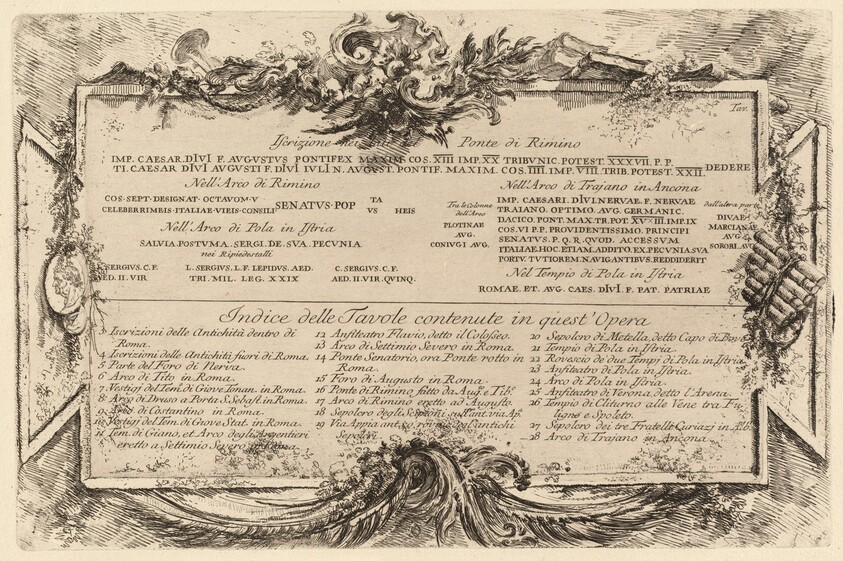 Tav.
Iscrizione nei lati del Ponte di Rimino
IMP. CAESAR. DIVI F. AVGVSTVS PONTIFEX MAXIM. COS. XIII IMP. XX TRIBVNIC. POTEST. XXXVII. P. P.
TI. CAESAR DIVI AVGVSTI F. DIVI IVLI N. AVGVST. PONTIF. MAXIM. COS. IIII. IMP. VIII. TRIB. POTEST. XXII. DEDERE
Nell'Arco di Rimino
COS·SEPT·DESIGNAT·OCTAVOM·V
CELEBERRIMEIS·ITALIAE·VIEIS·CONSILI SENATVS·POP
TA
VS HEIS
Nell'Arco di Pola in Istria
SALVIA. POSTVMA. SERGI. DE. SVA. PECVNIA
nei Ripiedestalli
L. SERGIVS. L. F. LEPIDVS. AED.
TRI. MIL. LEG. XXIX
SERGIVS. C. F.
AED. II. VIR
C. SERGIVS. C. F.
AED. II. VIR. QVINQ.
Nell'Arco di Trajano in Ancona
Tra le Colonne
dell'Arco
PLOTINAE
AVG.
CONIVGI AVG.
IMP. CAESARI. DIVI. NERVAE. F. NERVAE
TRAIANO. OPTIMO. AVG. GERMANIC.
DACICO. PONT. MAX. TR. POT. XVIIII. IMP. IX
COS. VI. P. P. PROVIDENTISSIMO. PRINCIPI
SENATVS. P. Q. R. QVOD. ACCESSVM
ITALIAE. HOC. ETIAM. ADDITO. EX. PECVNIA. SVA
PORTV. TVTIOREM. NAVIGANTIBVS. REDDIDERIT
dall'altra parte
DIVAE
MARCIANAE
AVG
SORORI. AVG
Nel Tempio di Pola in Istria
ROMAE. ET. AVG. CAES. DIVI. F. PAT. PATRIAE
Indice delle Tavole contenute in quest'Opera
3 Iscrizioni delle Antichità dentro di
Roma.
4 Iscrizioni delle Antichità fuori di Roma.
5 Parte del Foro di Nerva.
6 Arco di Tito in Roma.
7 Vestigi del Tem. di Giove Tonan. in Roma.
8 Arco di Druso a Porta S. Sebast. in Roma.
9 Arco di Costantino in Roma.
10 Vestigj del Tem. di Giove Stat. in Roma.
11 Tem. di Giano, et Arco degli Argentieri
eretto a Settimio Severo in Roma.
12 Anfiteatro Flavio, detto il Colosseo.
13 Arco di Settimio Severo in Roma.
14 Ponte Senatorio, ora Ponte rotto in
Roma.
15 Foro di Augusto in Roma.
16 Ponte di Rimino fatto da Aug. e Tib.
17 Arco di Rimino eretto ad Augusto.
18 Sepolcro degli Scipioni sull'ant. via Ap.
19 Via Appia antica
Sepolcri
20 Sepolcro di Metella, detto Capo di Bove.
21 Tempio di Pola in Istria.
22 Rovescio de' due Tempj di Pola in Istria
23 Anfiteatro di Pola in Istria.
24 Arco di Pola in Istria.
25 Anfiteatro di Verona, detto l'Arena.
26 Tempio di Clitunno alle Vene tra Fu-
ligno e Spoleto.
27 Sepolcro dei tre Fratelli Curiazj in Alb.
28 Arco di Trajano in Ancona